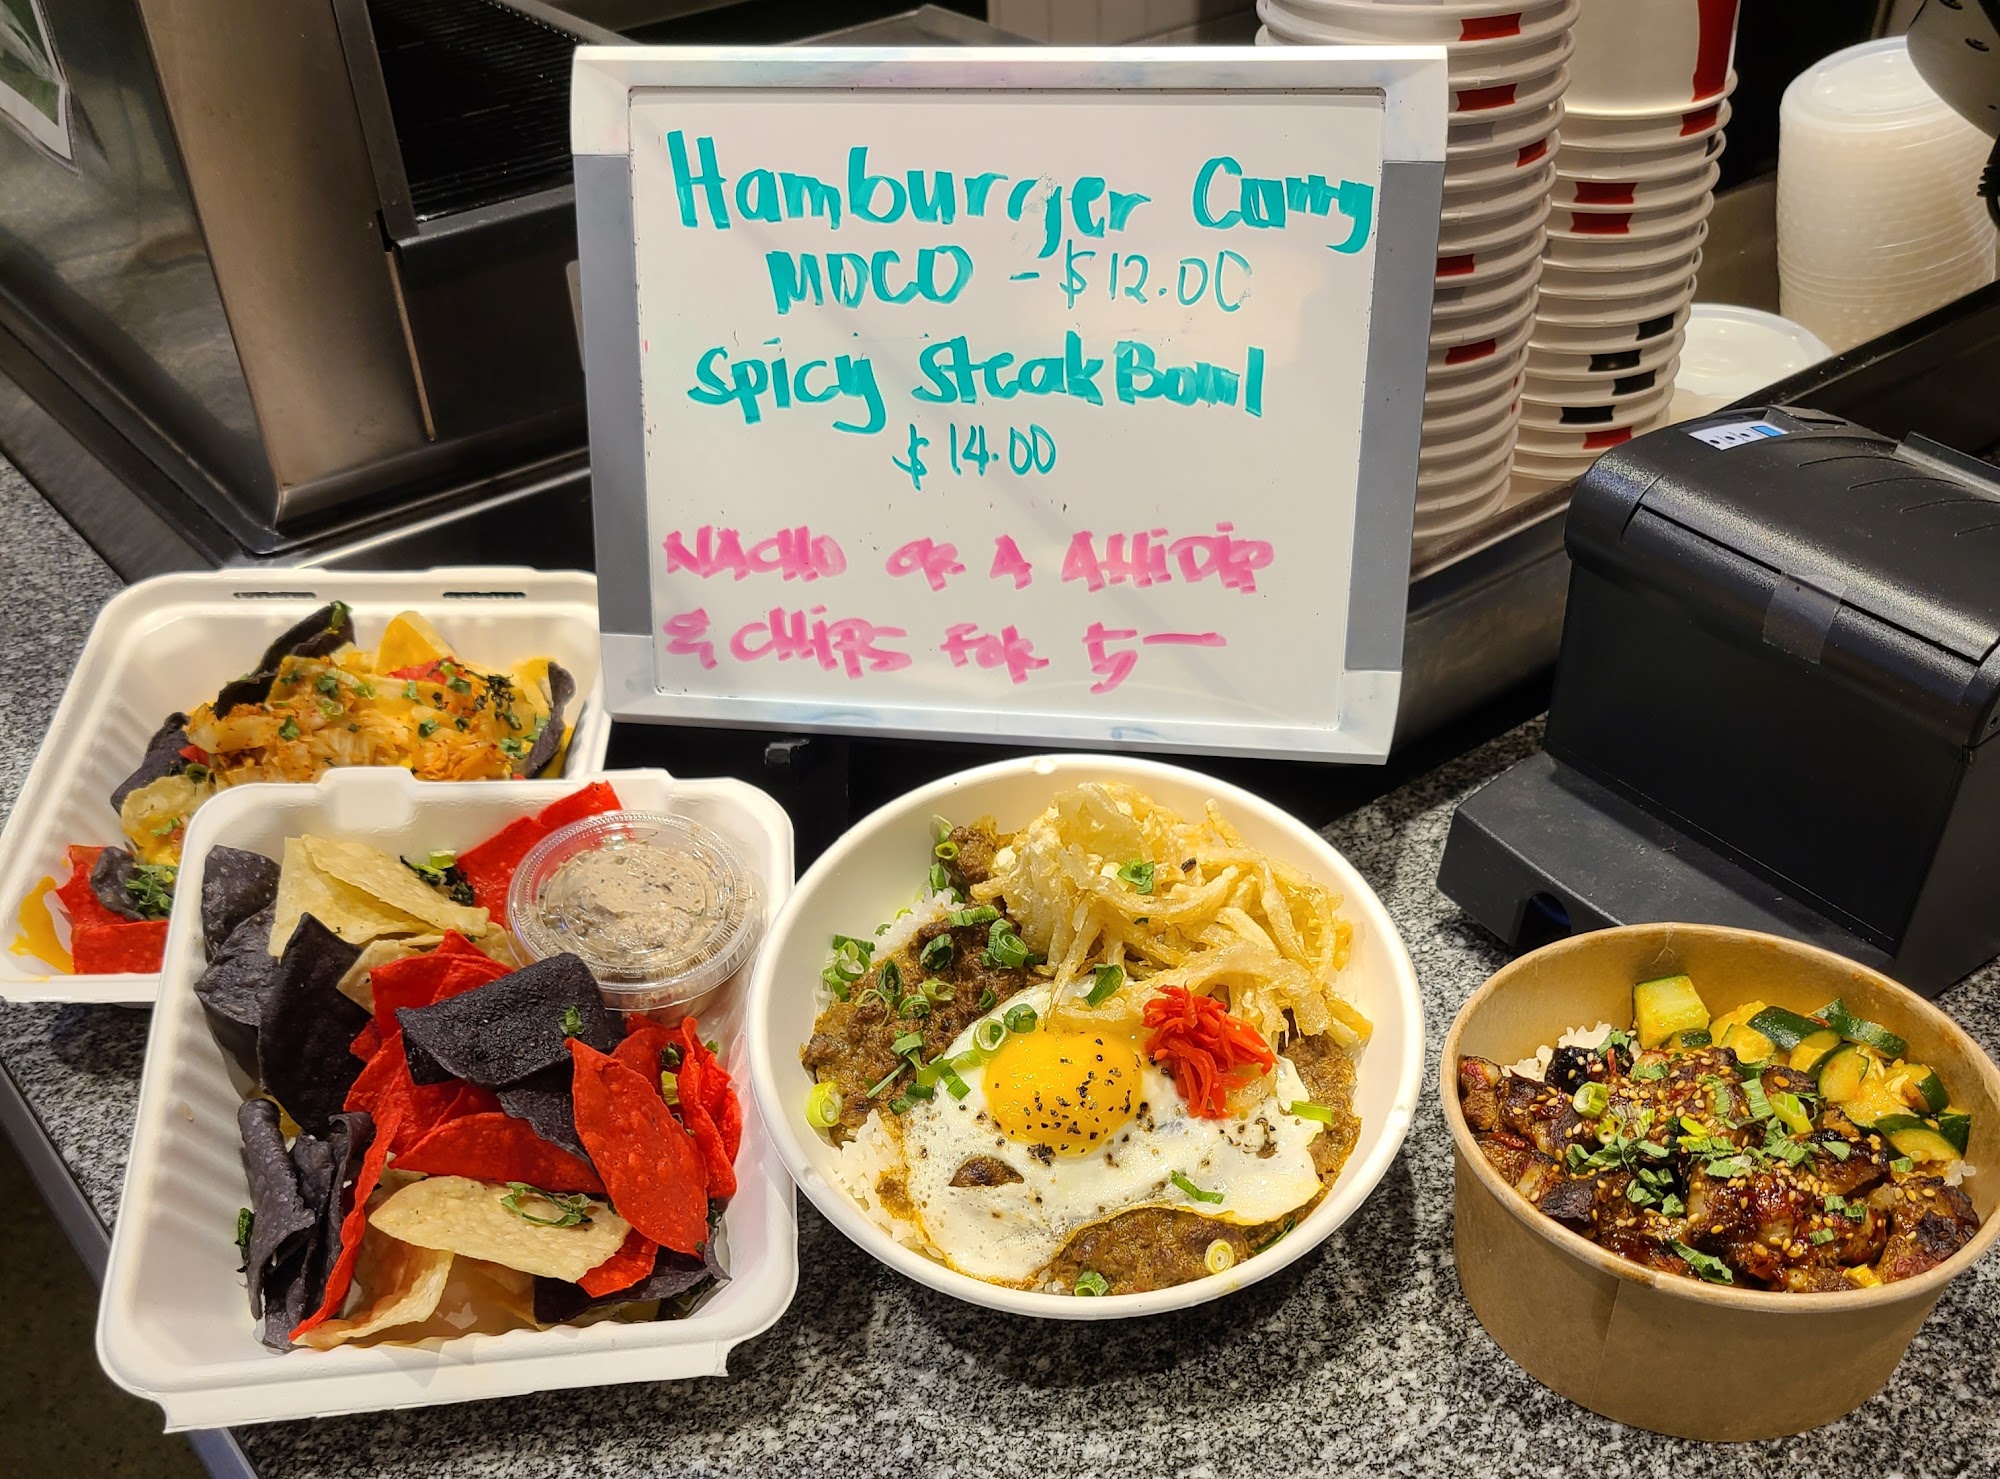 Hamburger Curry
MOCO - $12.00
Spicy Steak Bowl
$14.00
NACHO OR A AHI DIP
& CHIPS FOR 5—